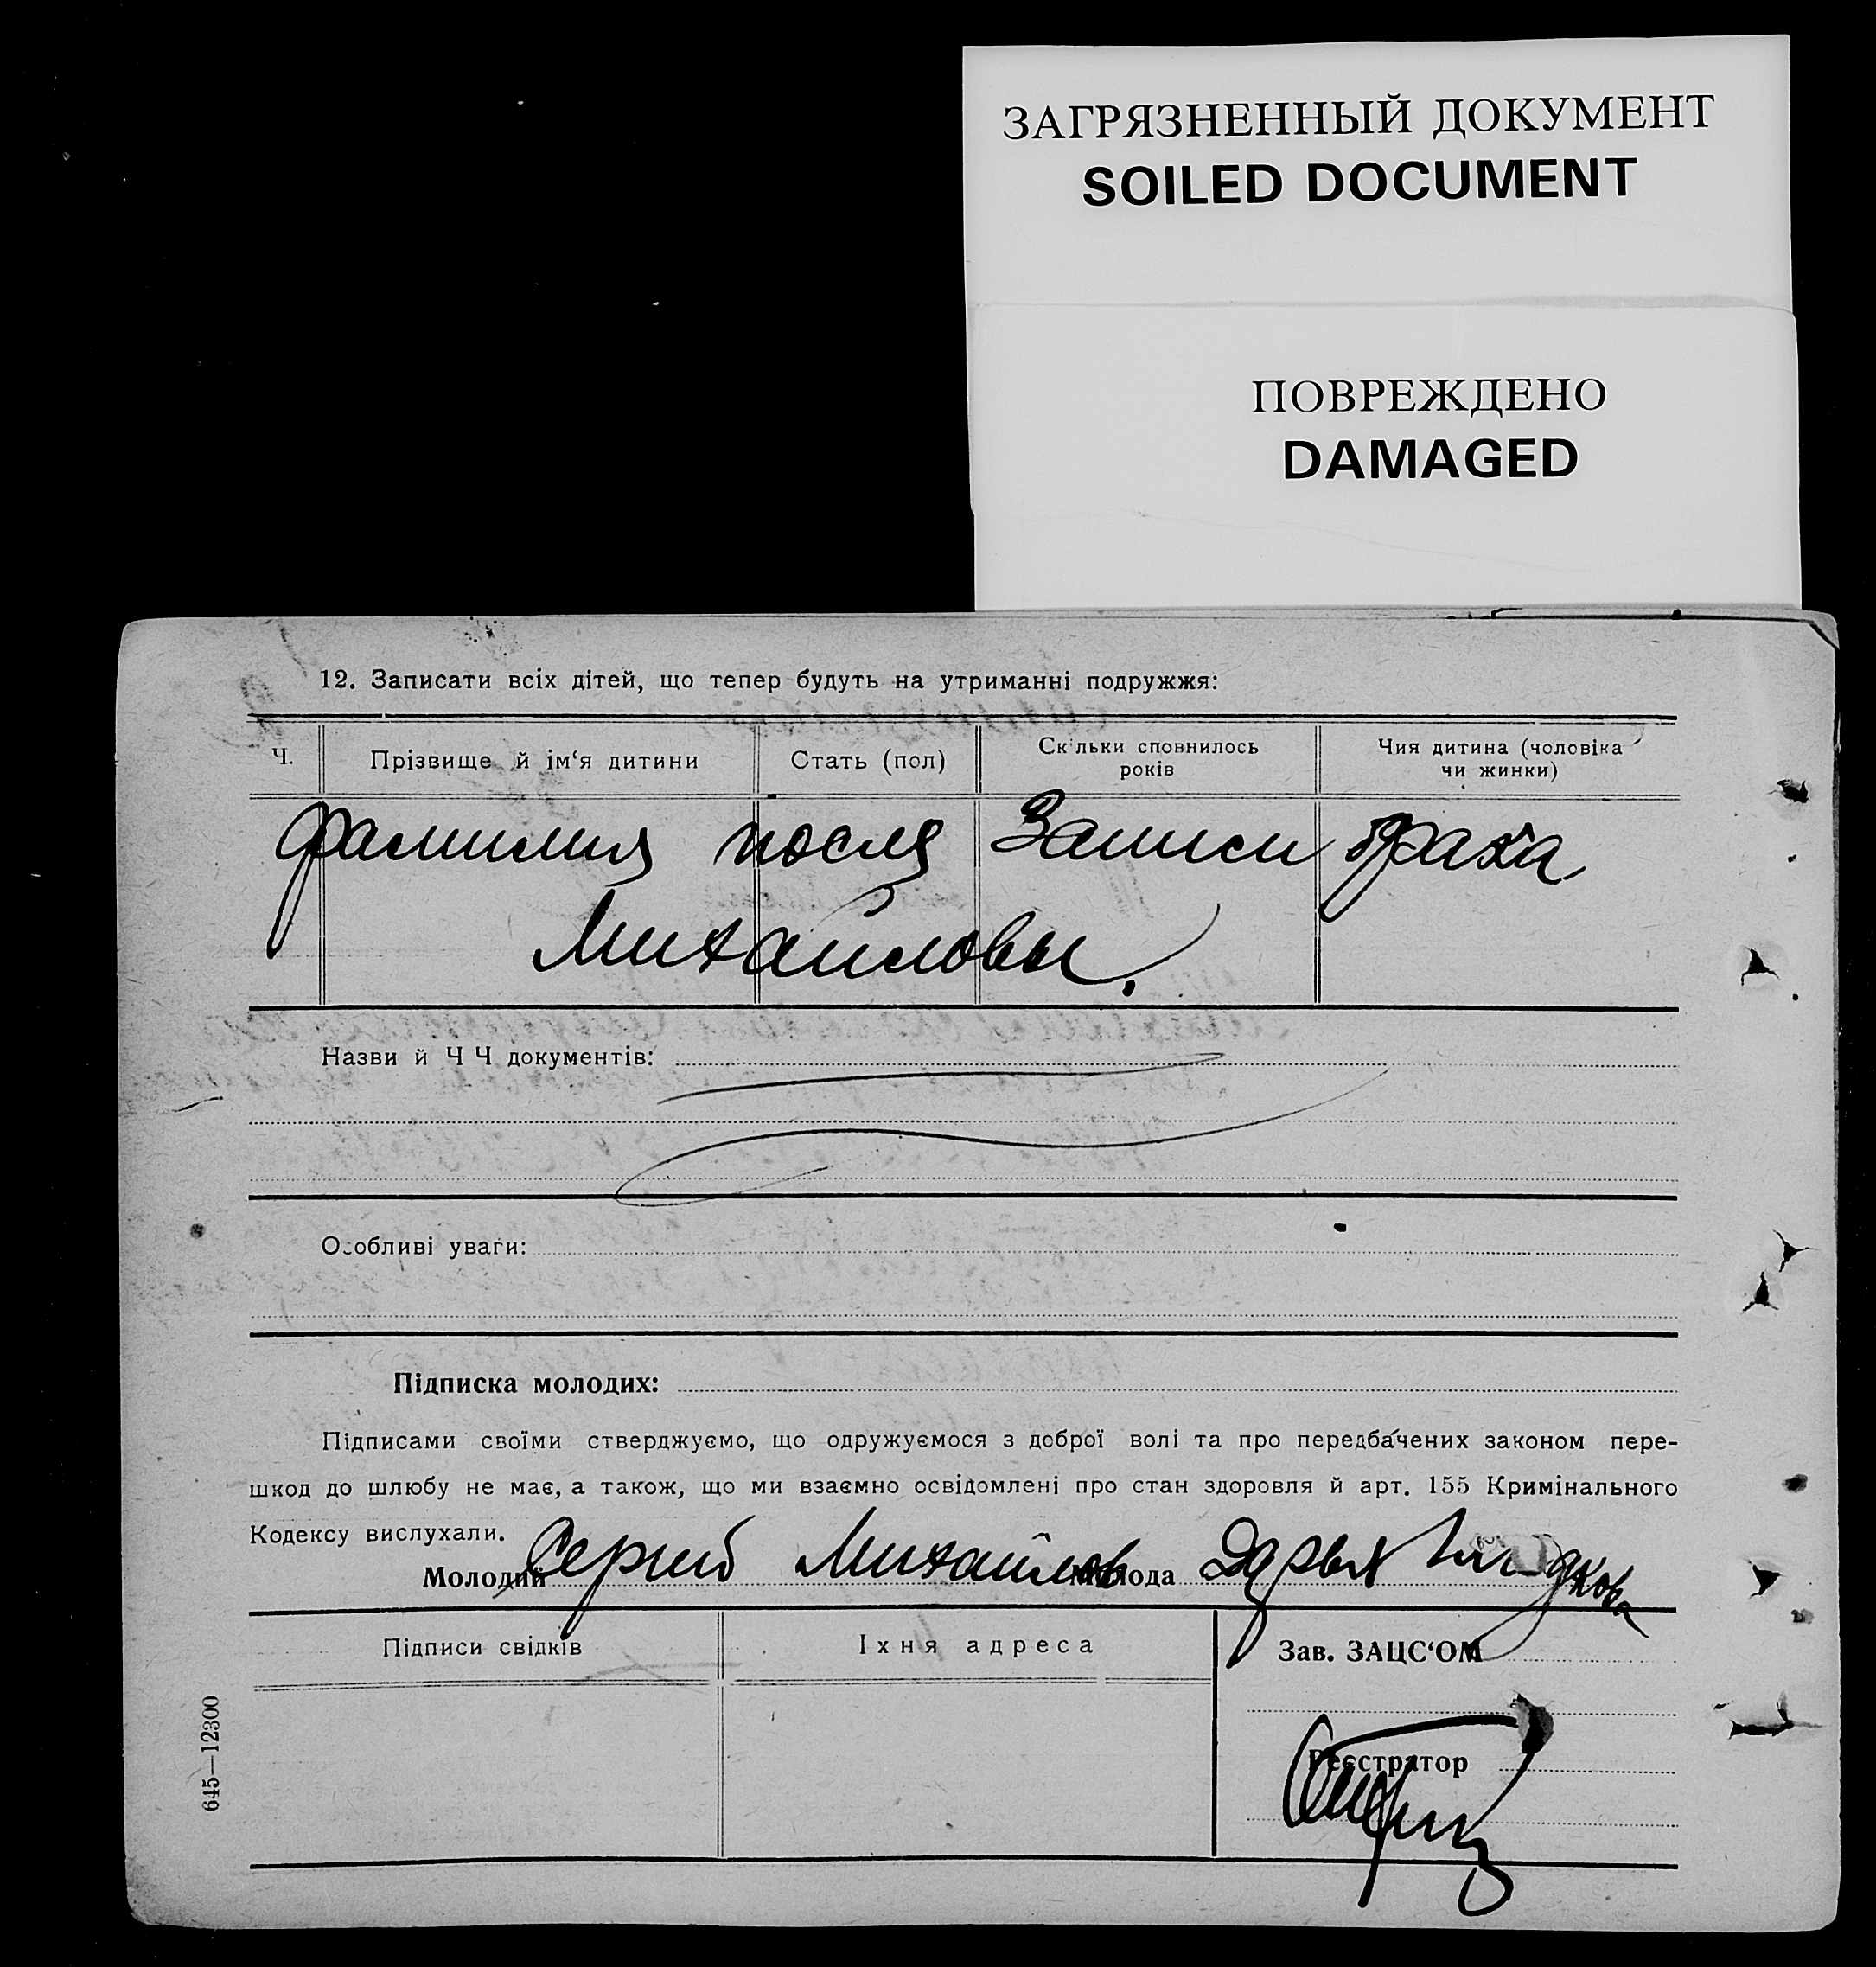 ЗАГРЯЗНЕННЫЙ ДОКУМЕНТ
SOILED DOCUMENT
ПОВРЕЖДЕНО
DAMAGED
12. Записати всіх дітей, що тепер будуть на утриманні подружжя:
Ч.
Прізвище й ім‘я дитини
Стать (пол)
Скільки сповнилось
років
Чия дитина (чоловіка
чи жинки)
Фамилия после записи брака
Михайловы.
Назви й Ч Ч документів:
Особливі уваги:
Підписка молодих:
Підписами своїми стверджуємо, що одружуємося з доброї волі та про передбачених законом пере-
шкод до шлюбу не має, а також, що ми взаємно освідомлені про стан здоровля й арт. 155 Кримінального
Кодексу вислухали.
Молодий Сергий Михайлов Молода Дарья
Підписи свідків
Їхня адреса
Зав. ЗАЦС‘ОМ
Реєстратор
645—12300